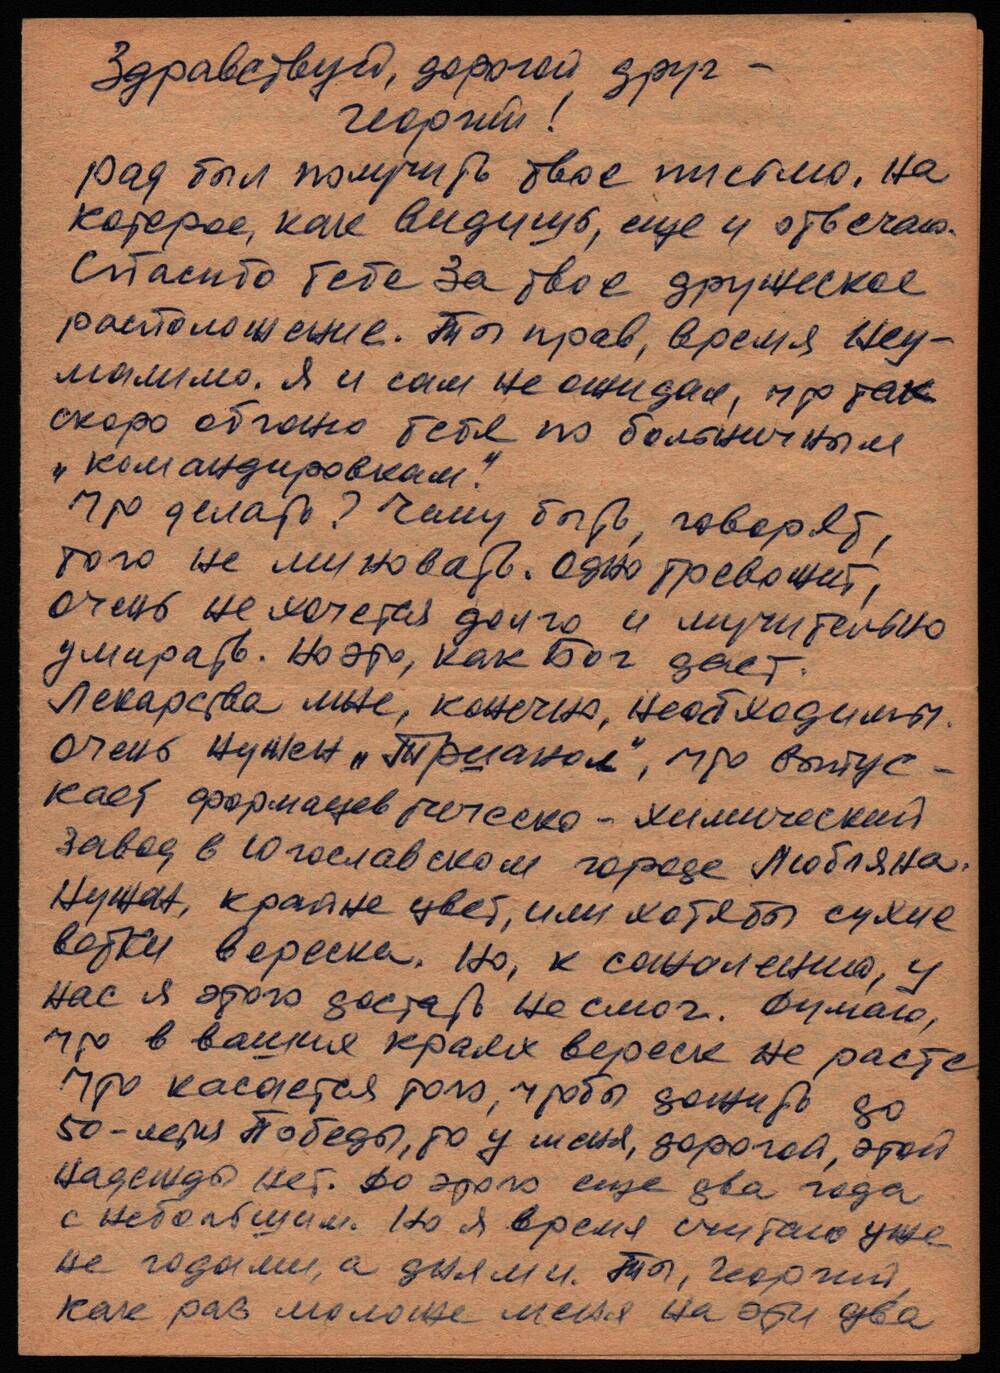 Здравствуй, дорогой друг –
Георгий!
рад был получить твое письмо. На
которое, как видишь, еще и отвечаю.
Спасибо тебе за твое дружеское
расположение. Ты прав, время неу–
молимо. Я и сам не ожидал, что так
скоро обгоню тебя по больничным
„командировкам".
Что делать? Чему быть, говорят,
того не миновать. Одно тревожит,
очень не хочется долго и мучительно
умирать. Но это, как Бог даст.
Лекарства мне, конечно, необходимы.
Очень нужен „Трианол", что выпус–
кает формацевтическо – химический
завод в Югославском городе Любляна.
Нужен, крайне цвет, или хотябы сухие
ветки вереска. Но, к сожалению, у
нас я этого достать не смог. Думаю,
что в ваших краях вереск не расте
Что касается того, чтобы дожить до
50–летия Победы, то у меня, дорогой, этой
надежды нет. До этого еще два года
с небольшим. Но я время считаю уже
не годами, а днями. Ты, Георгий,
как раз моложе меня на эти два